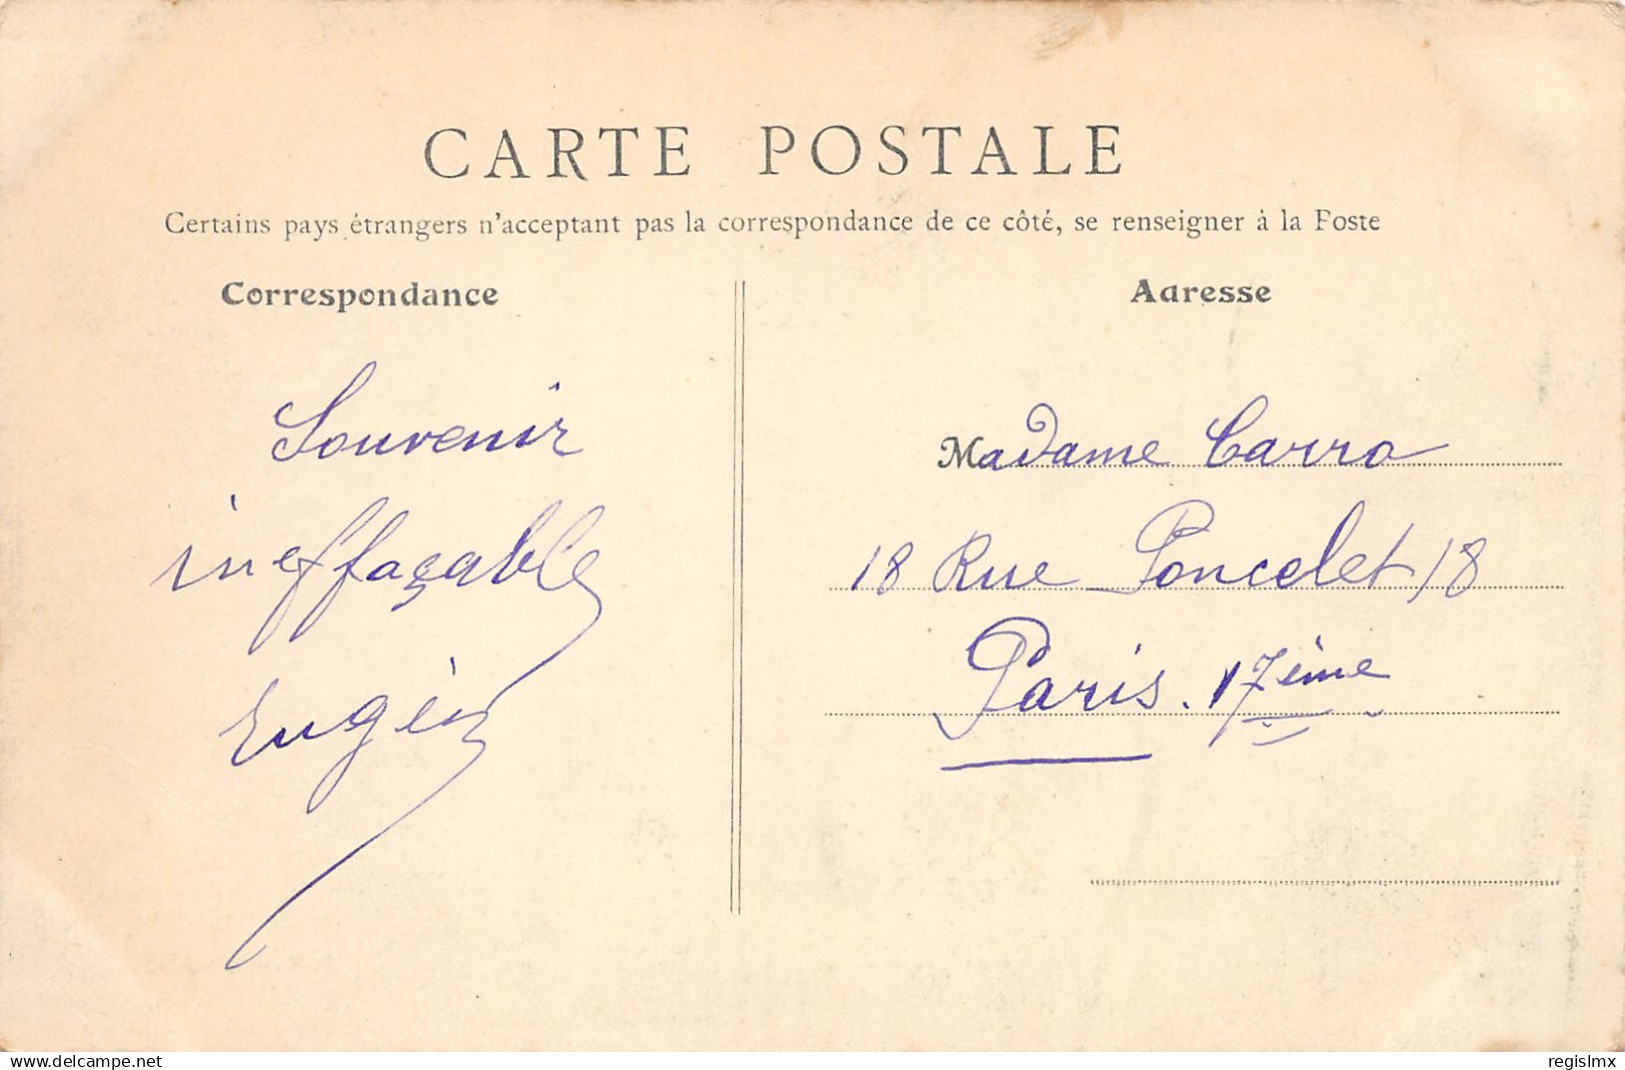 CARTE POSTALE
Certains pays étrangers n'acceptant pas la correspondance de ce côté, se renseigner à la Poste
Correspondance
Souvenir
ineffaçable
Eugèn
Adresse
Madame Carro
18 Rue Poncelet 18
Paris. 17ème
www.delcampe.net
regislmx